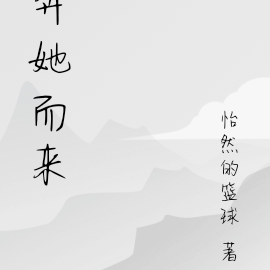 奔她而来
怡然的篮球 著